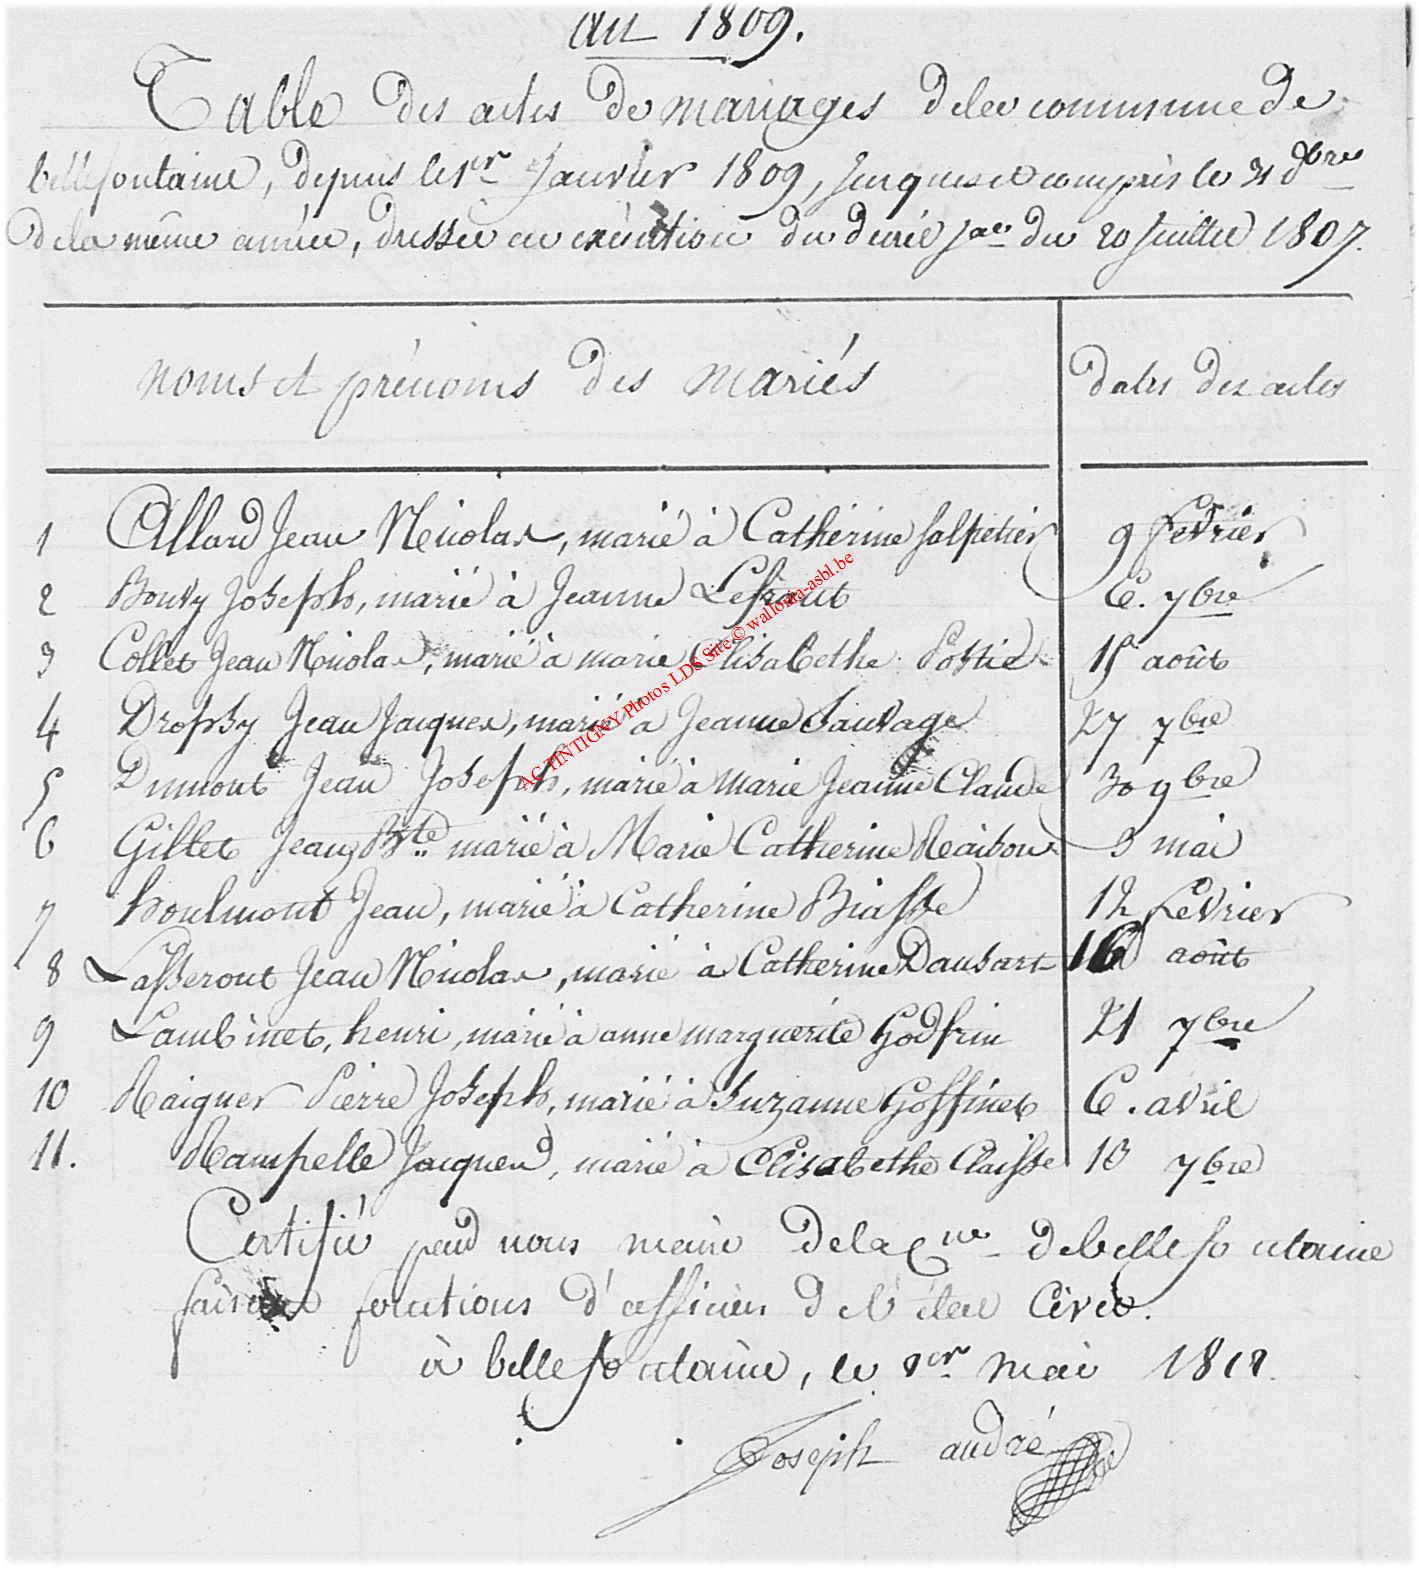 an 1809.
Table des actes de mariages dela commune de
bellefontaine, depuis le 1er Janvier 1809, jusques et compris le 31 Xbre
dela même année, dressée en exécution du décrêt du 20 Juillet 1807.
noms et prénoms des mariés
dates des actes
1 Allard Jean Nicolas, marié à Catherine Salpetier 9 fevrier
2 Bouvy Joseph, marié à Jeanne 6. 7bre
3 Collet Jean Nicolas, marié à marie Elisabethe Postie 15 août
4 Dropsy Jean Jacques, marié à Jeanne Sauvage 27 7bre
5 Dumont Jean Joseph, marié à Marie Jeanne Claude 30 9bre
6 Gillet Jean Bte marié à Marie Catherine 3 mai
7 houlmont Jean, marié à Catherine Biasse 12 fevrier
8 Lasseront Jean Nicolas, marié à Catherine Dausart 16 août
9 Lambinet, henri, marié à anne marguerite Godfrin 21 7bre
10 Raiguer Pierre Joseph, marié à Suzanne Goffinet 6. avril
11. Rampelle Jacques, marié à Elisabethe Claisse 10 7bre
Certifié par nous maire dela Cne de bellefontaine
faisant fonctions d'officier de l'état Civil.
à bellefontaine, le 1er mai 1811.
Joseph andré
AC TINTIGNY Photos LDS Site © wallonia-asbl.be